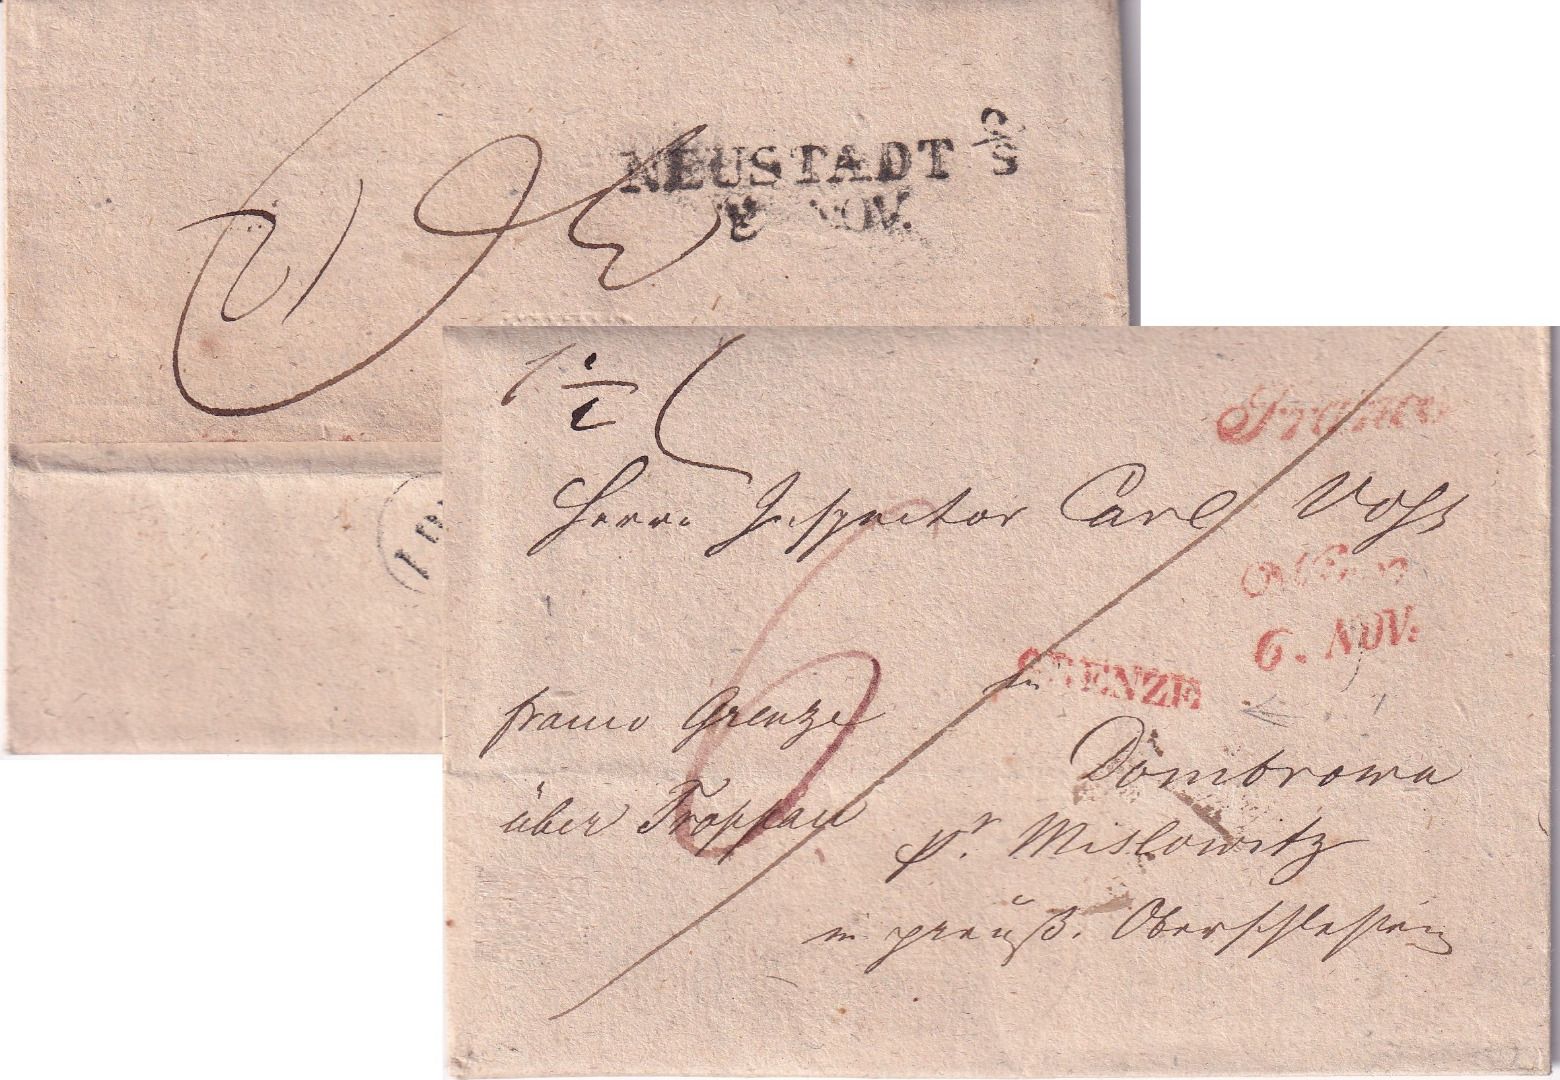 NEUSTADT O/S
8 NOV.
1 1/2
Franco
Herrn Inspector Carl
6. NOV:
GRENZE
6
franco Grenze
über Troppau
in
Dombrowa
pr. Mislowitz
in preuß. Oberschlesien